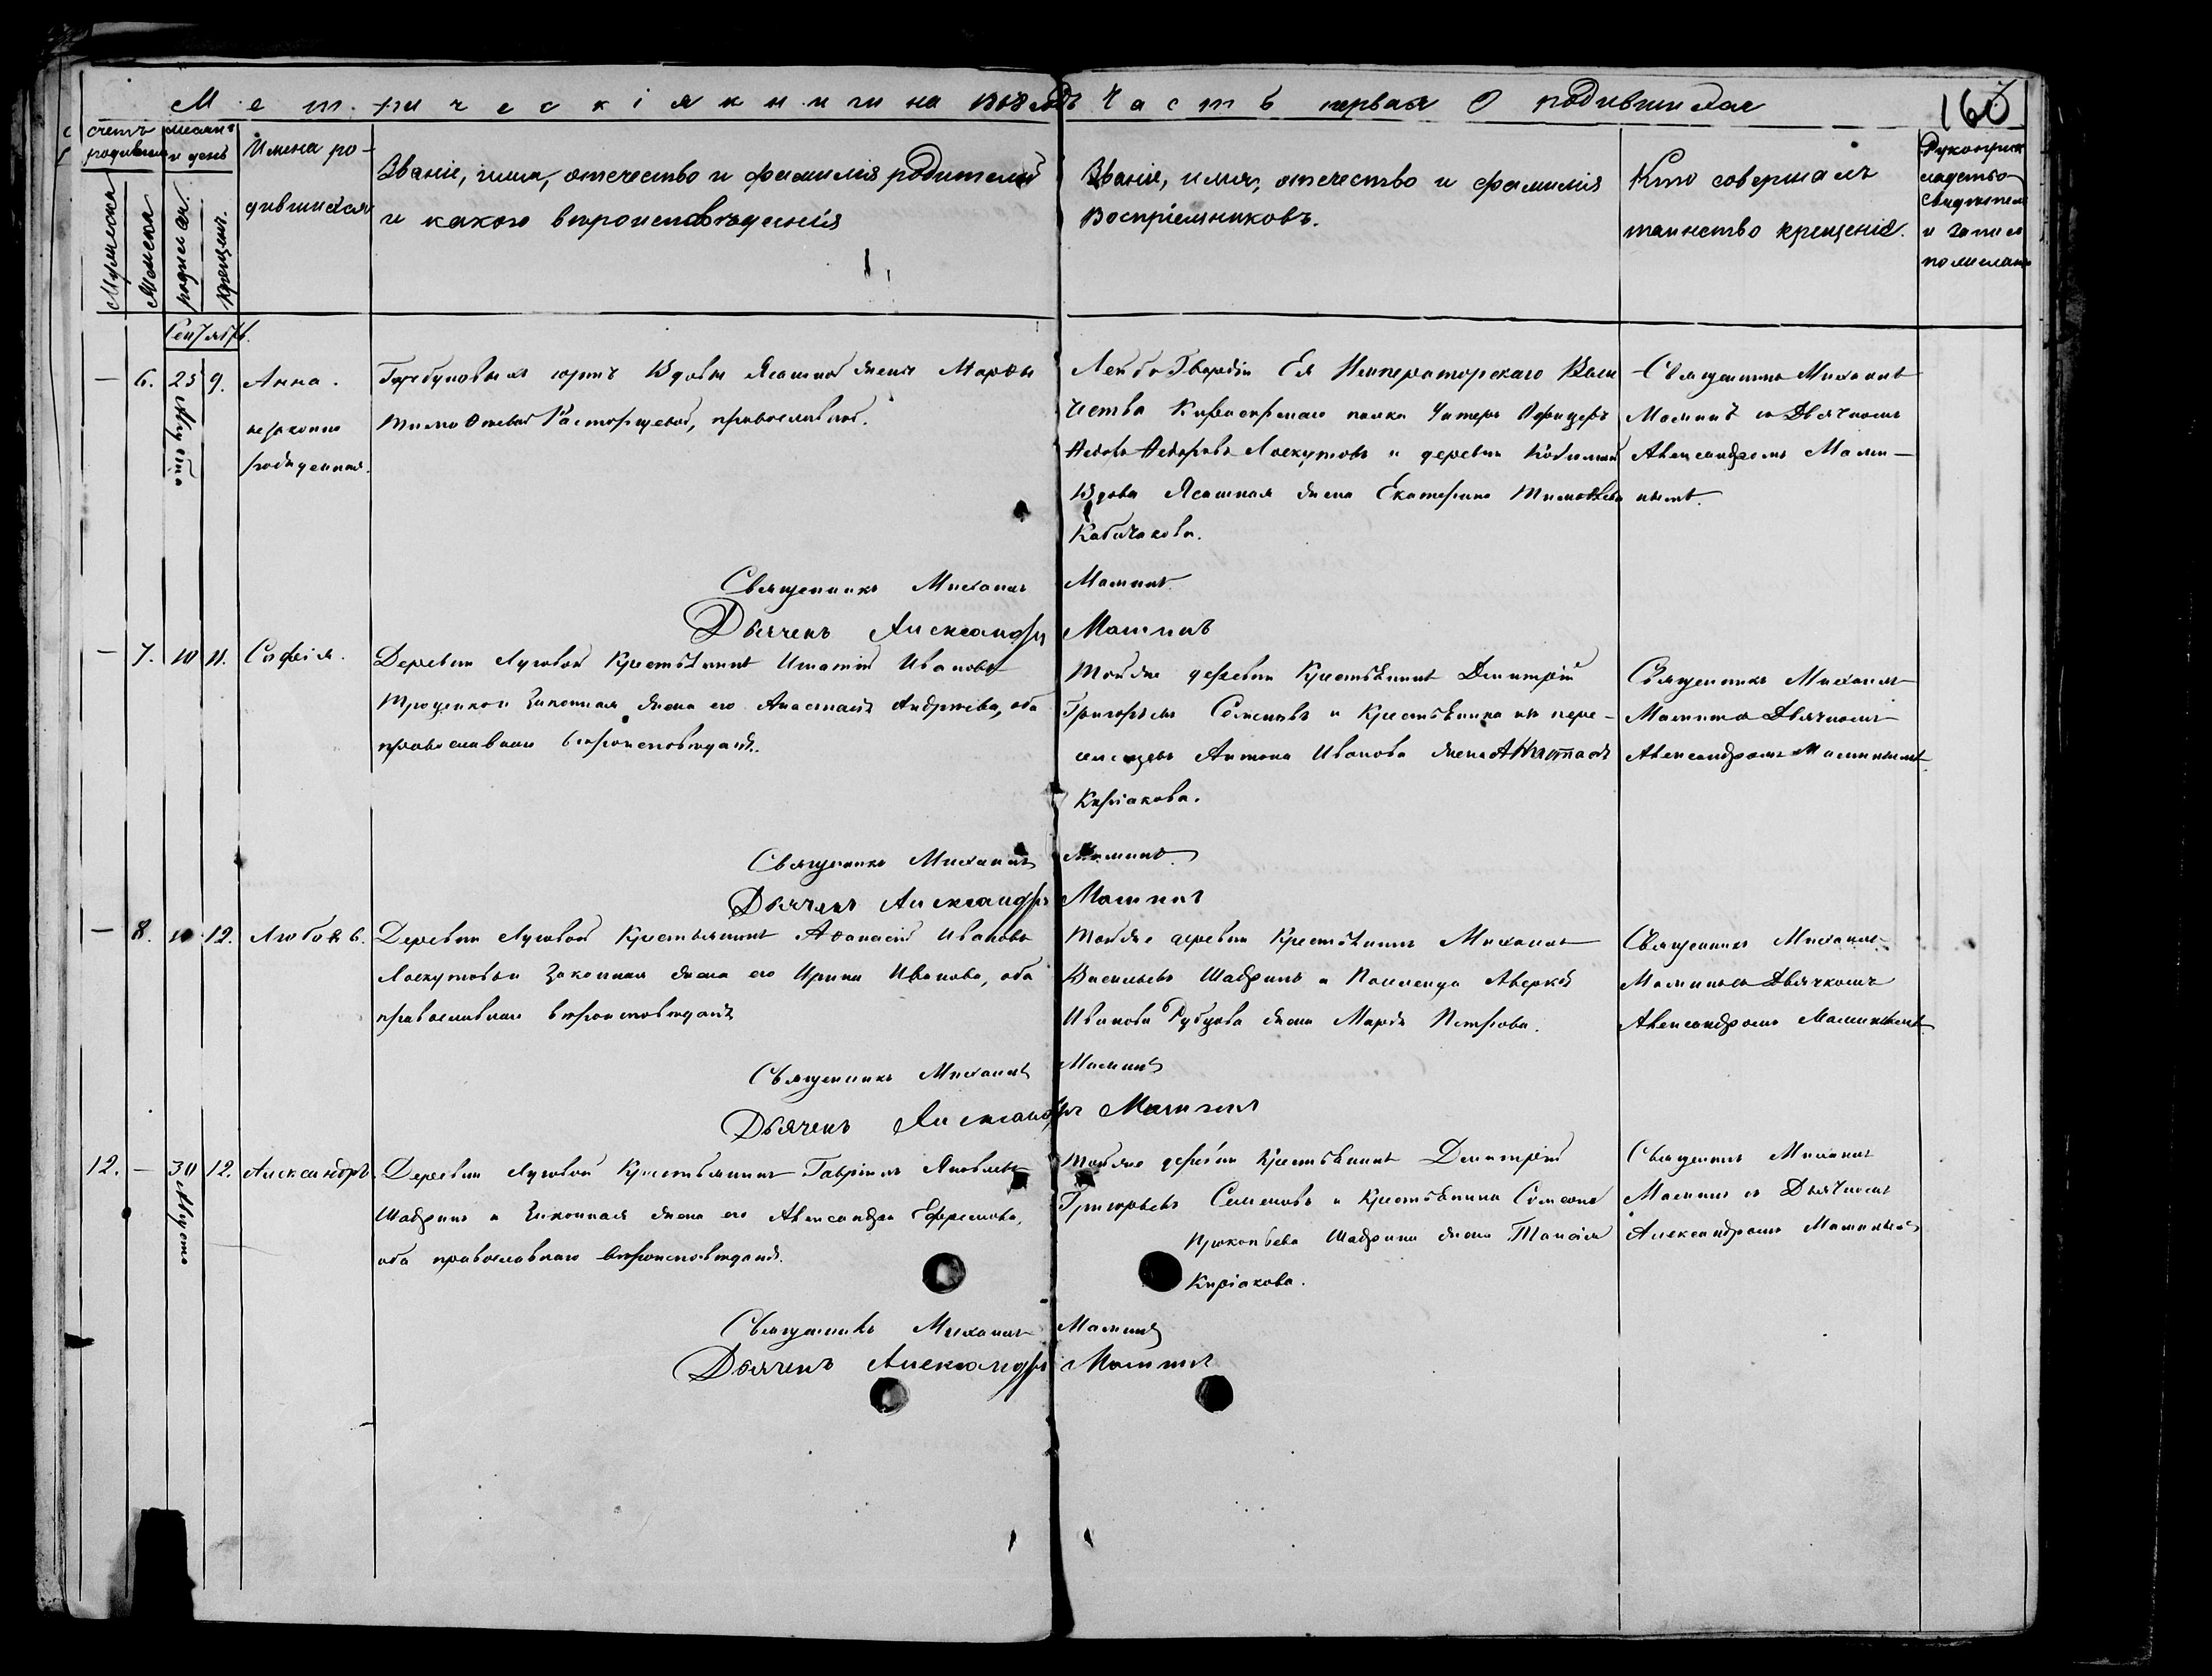 Метрическія книги на 1868 годъ Часть первая О родившихся
160
счетъ родивших
месяцъ и день
Имена родившихся
Званіе, имя, отчество и фамилія родителей
и какого вѣроисповѣданія
Званіе, имя, отчество и фамилія
Воспріемниковъ.
Кто совершалъ
таинство крещенія.
Рукоприкладство свидѣтелей и записи по желанію
Мужеска
Женска
рожденія.
крещенія.
Сентябрь.
— 6. 25 Августа 9. Анна. незаконно рожденная.
юртъ Вдовы Ясашной жены Марѳы
Тимоѳеевой Расторгуевой, православной.
Лейбъ Гвардіи Ея Императорскаго Величества Кирасирскаго полка Унтеръ Офицеръ
Ѳедоръ Ѳедоровъ Лоскутовъ и деревни
Вдова Ясашная жена Екатерина Тимоѳеева
Кабачакова.
Священникъ Михаилъ
Маминъ съ Дьячкомъ
Александромъ Маминымъ.
Священникъ Михаилъ Маминъ
Дьячекъ Александръ Маминъ
— 7. 10 11. Софія.
Деревни Луговой Крестьянинъ Игнатій Ивановъ
и законная жена его Анастасія Андреева, оба
православнаго вѣроисповѣданія.
Той же деревни Крестьянинъ Димитрій
Григорьевъ Семеновъ и Крестьянина изъ переселенцевъ Антона Иванова жена
Киріакова.
Священникъ Михаилъ
Маминъ съ Дьячкомъ
Александромъ Маминымъ.
Священникъ Михаилъ Маминъ
Дьячекъ Александръ Маминъ
— 8. 10 12. Любовь.
Деревни Луговой Крестьянинъ Аѳанасій Ивановъ
Лоскутовъ и законная жена его Ирина Иванова, оба
православнаго вѣроисповѣданія
Той же деревни Крестьянинъ Михаилъ
Васильевъ Шабринъ и Поселенца Аверкія
Иванова Рубцова жена Марѳа Петрова.
Священникъ Михаилъ
Маминъ съ Дьячкомъ
Александромъ Маминымъ
Священникъ Михаилъ Маминъ
Дьячекъ Александръ Маминъ
12. — 30 Августа 12. Александръ.
Деревни Луговой Крестьянинъ Гавріилъ Яковлевъ
Шабринъ и законная жена его Александра Ефремова,
оба православнаго вѣроисповѣданія.
Той же деревни Крестьянинъ Димитрій
Григорьевъ Семеновъ и Крестьянина Симеона
Прокопьева Шабрина жена Таисія
Киріакова.
Священникъ Михаилъ
Маминъ съ Дьячкомъ
Александромъ Маминымъ
Священникъ Михаилъ Маминъ
Дьячекъ Александръ Маминъ